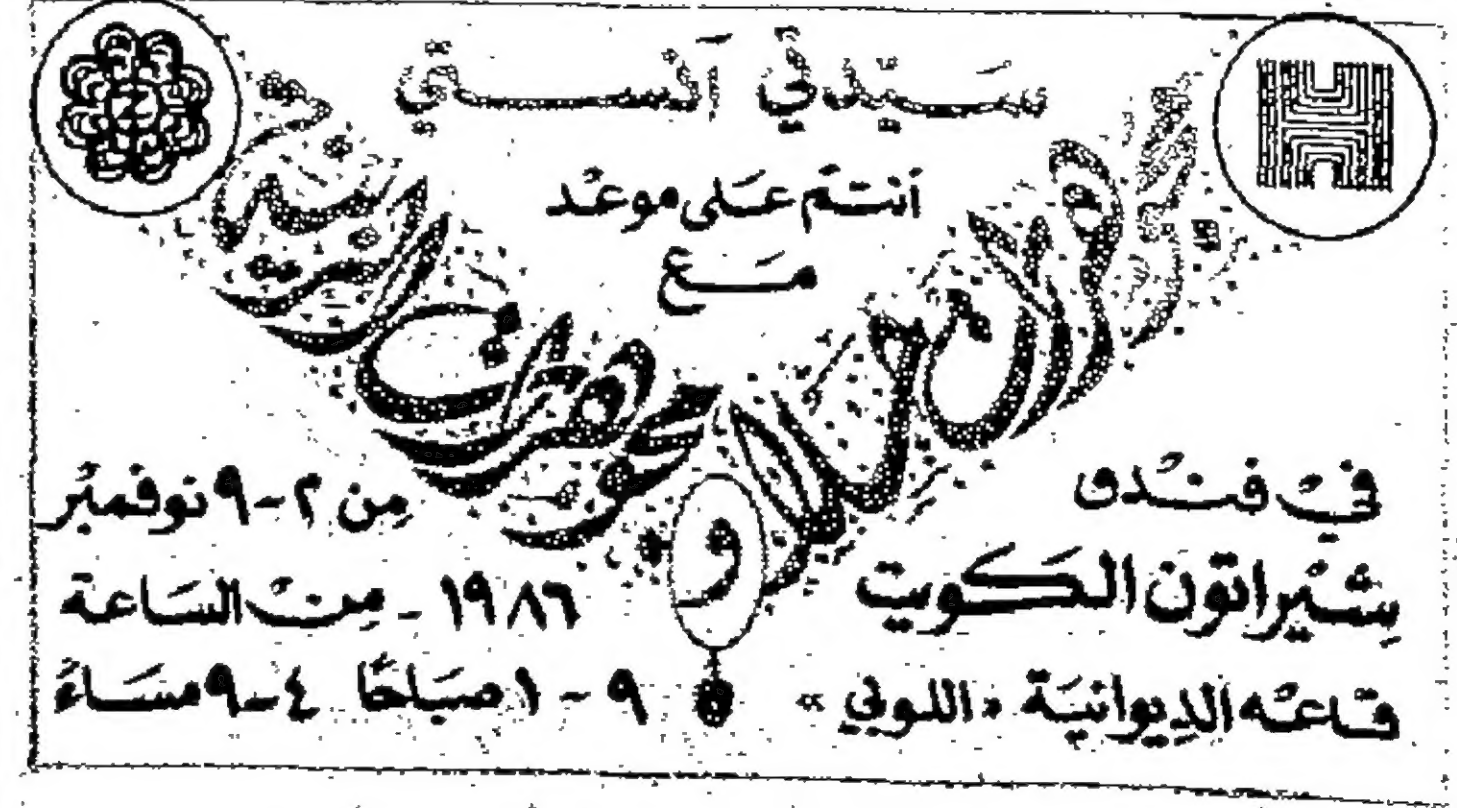 سَيّدتي آنستي
أنتم عَلى موعد
مَع
و
في فندق
شيراتون الكويت
قاعة الديوانية «اللوبي»
من ٢-٩ نوفمبر
١٩٨٦ - من الساعة
٩ - ١ صباحًا ٤-٩ مساءً